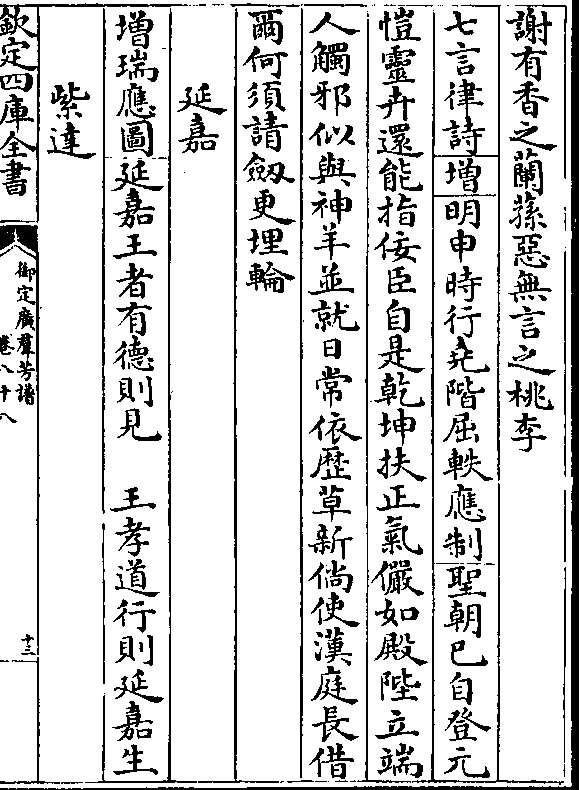 謝有香之蘭蓀惡無言之桃李
七言律詩增明申時行堯階屈軼應制聖朝已自登元
愷靈卉還能指佞臣自是乾坤扶正氣儼如殿陛立端
人觸邪似與神羊並就日常依歴草新倘使漢庭長借
爾何須請劔更埋輪
延嘉
增瑞應圖延嘉王者有德則見　王孝道行則延嘉生
紫達
欽定四庫全書
御定廣羣芳譜
卷八十八
十三